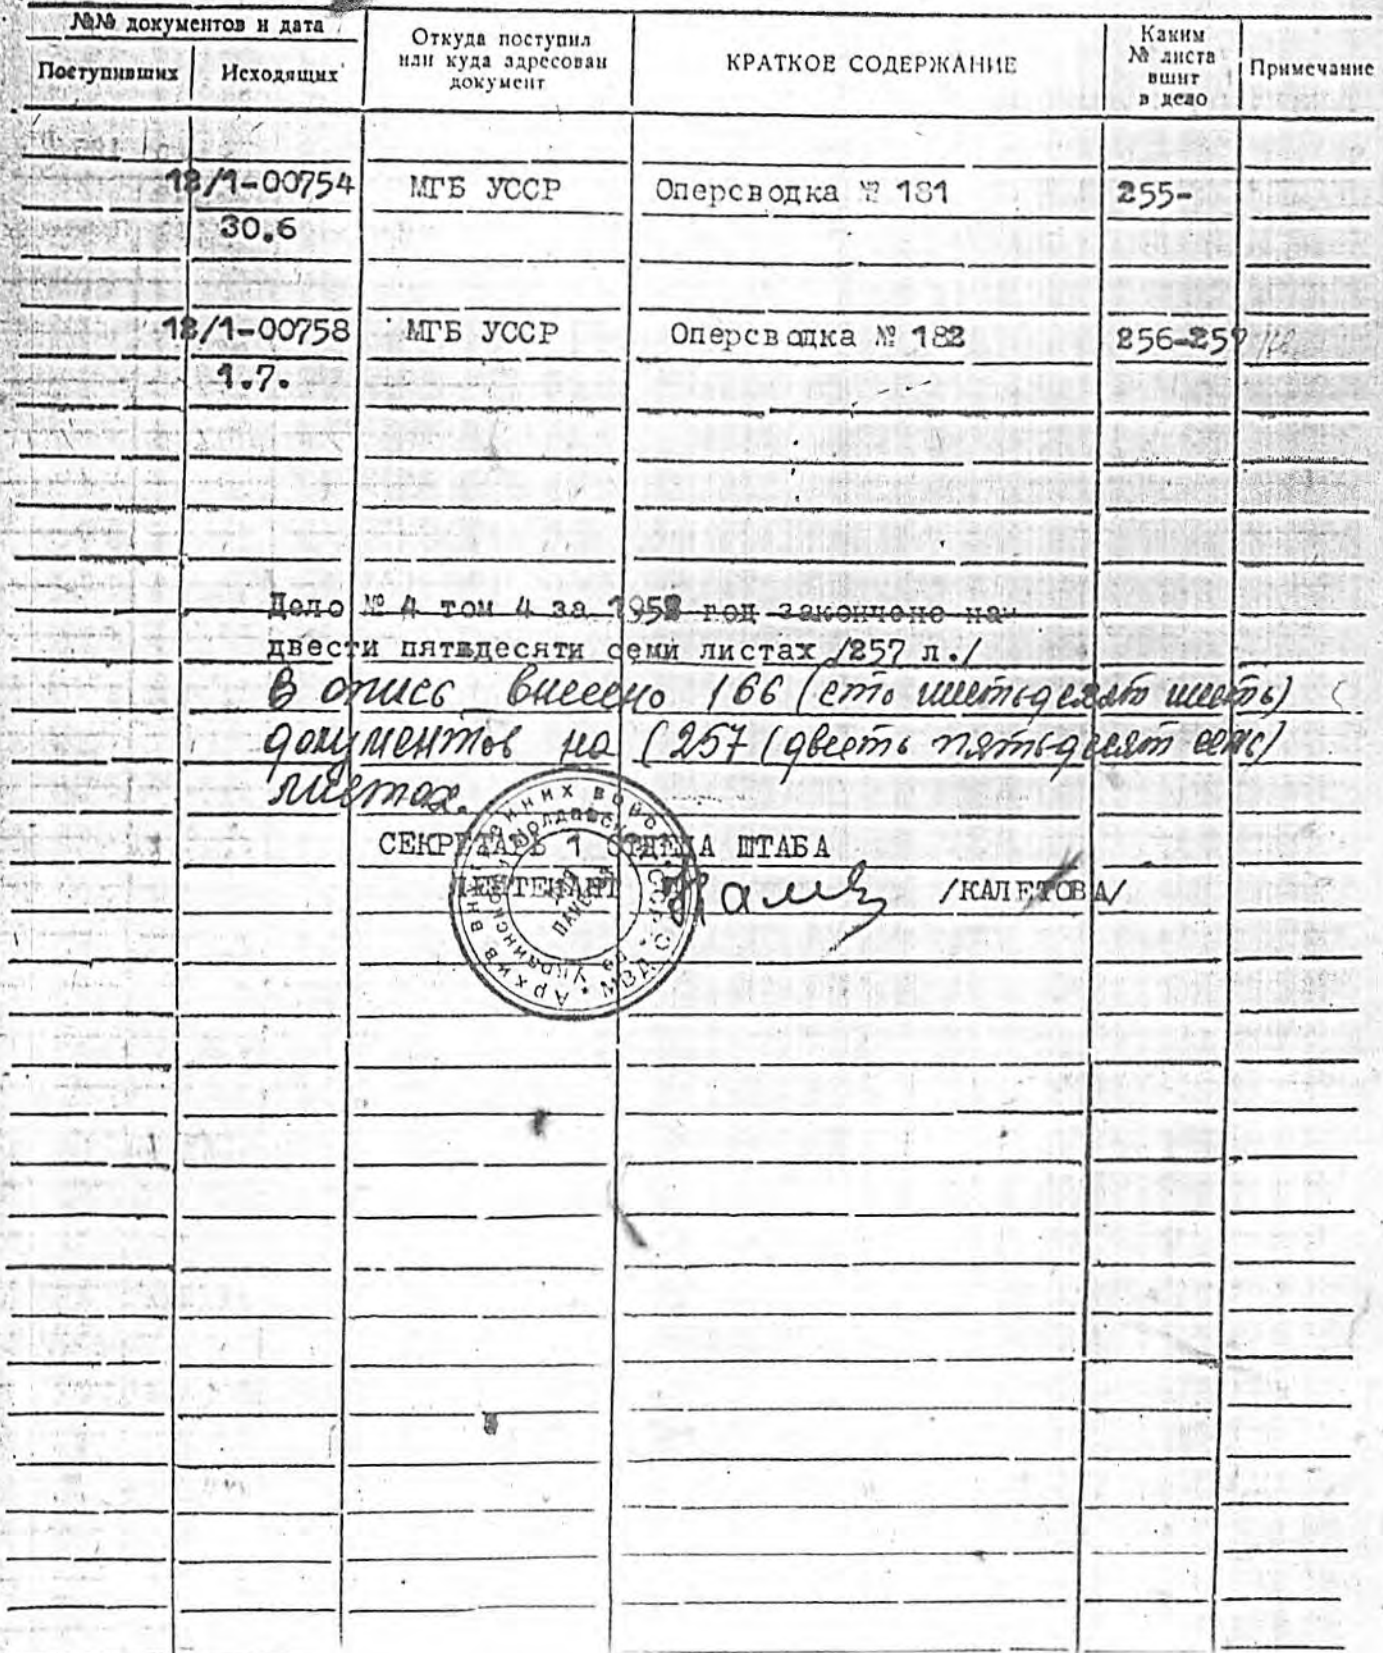 №№ документов и дата
Поступивших
Исходящих
Откуда поступил
или куда адресован
документ
КРАТКОЕ СОДЕРЖАНИЕ
Каким
№ листа
вшит
в дело
Примечание
18/1-00754 МГБ УССР Оперсводка № 181 255-
30.6
18/1-00758 МГБ УССР Оперсводка № 182 256-257
1.7.
Дело № 4 том 4 за 195 год закончено на
двести пятидесяти семи листах /257 л./
В опись внесено 166 (сто шестьдесят шесть)
документов на (257 (двести пятьдесят семь)
листах.
СЕКРЕТАРЬ 1 ОТДЕЛА ШТАБА
ЛЕЙТЕНАНТ /КАЛЕТОВА/
Архив внутренних войск
Украинской Молдавской
МВД СССР